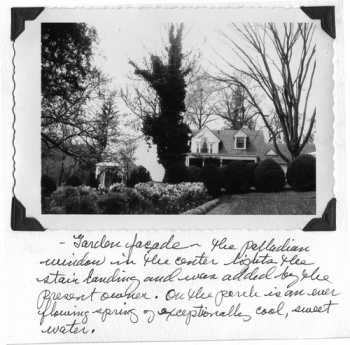 - Garden façade - the palladian
window in the center lights the
stair landing and was added by the
present owner. On the porch is an ever
flowing spring of exceptionally cool, sweet
water.